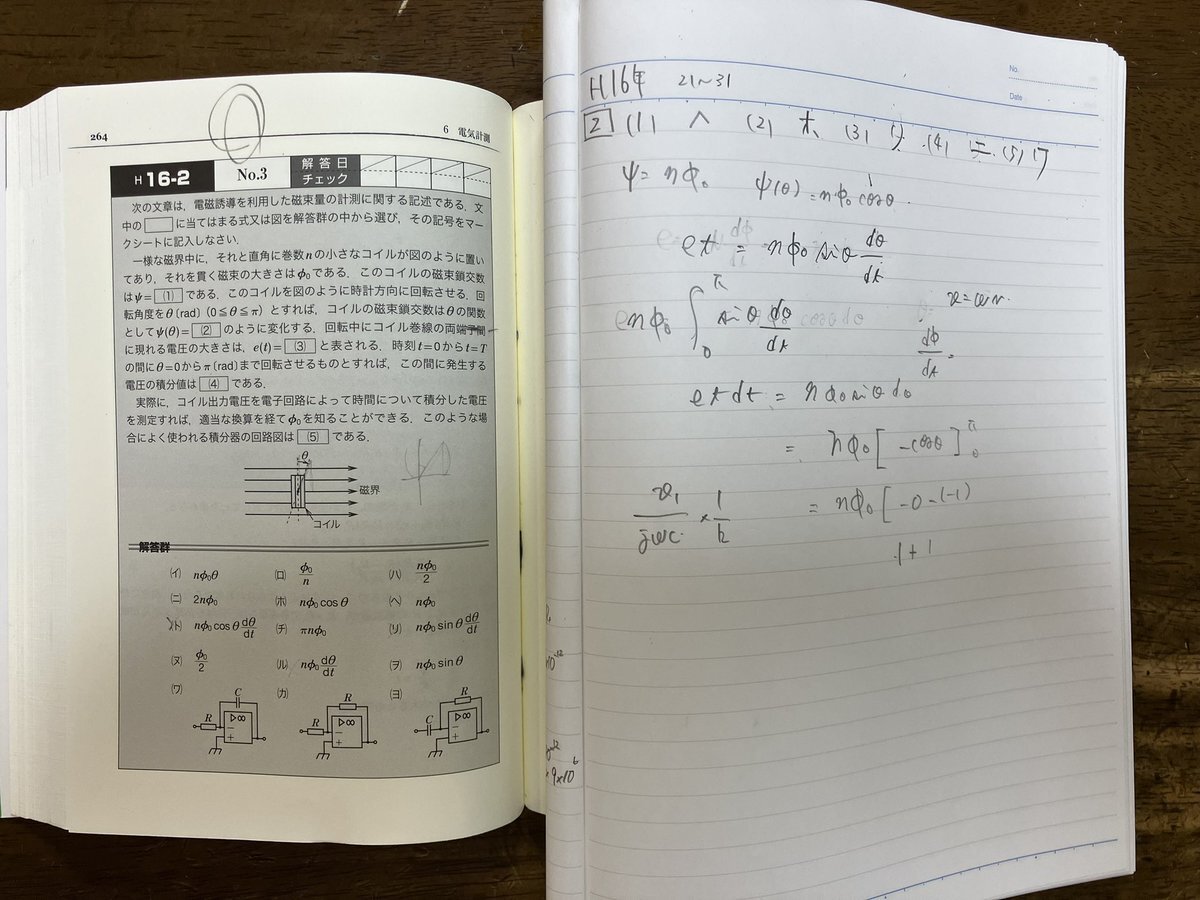 264
6 電気計測
H 16-2
No.3
解答日
チェック
次の文章は,電磁誘導を利用した磁束量の計測に関する記述である.文
中の に当てはまる式又は図を解答群の中から選び,その記号をマー
クシートに記入しなさい.
一様な磁界中に,それと直角に巻数nの小さなコイルが図のように置い
てあり,それを貫く磁束の大きさはφ₀である.このコイルの磁束鎖交数
はψ= (1) である.このコイルを図のように時計方向に回転させる.回
転角度をθ〔rad〕(0≦θ≦π)とすれば,コイルの磁束鎖交数はθの関数
としてψ(θ)= (2) のように変化する.回転中にコイル巻線の両端子間
に現れる電圧の大きさは,e(t)= (3) と表される.時刻t=0からt=T
の間にθ=0からπ〔rad〕まで回転させるものとすれば,この間に発生する
電圧の積分値は (4) である.
実際に,コイル出力電圧を電子回路によって時間について積分した電圧
を測定すれば,適当な換算を経てφ₀を知ることができる.このような場
合によく使われる積分器の回路図は (5) である.
θ
磁界
コイル
解答群
(イ) nφ₀θ (ロ) φ₀/n (ハ) nφ₀/2
(ニ) 2nφ₀ (ホ) nφ₀cosθ (ヘ) nφ₀
(ト) nφ₀cosθ dθ/dt (チ) πnφ₀ (リ) nφ₀sinθ dθ/dt
(ヌ) φ₀/2 (ル) nφ₀ dθ/dt (ヲ) nφ₀sinθ
(ワ) (カ) (ヨ)
C R R
R ▷∞ − + R ▷∞ − + C ▷∞ − +
No.
Date
H16年 21~31
2 (1) ヘ (2) ホ (3) リ (4) ニ (5) ワ
ψ=nφ₀ ψ(θ)=nφ₀cosθ
et = nφ₀ sinθ dθ/dt
enφ₀ ∫₀^π sinθ dθ/dt
v=ωr
dφ/dt =
et dt = nφ₀ sinθ dθ
= nφ₀[-cosθ]₀^π
v₁/jωc × 1/R = nφ₀[-0-(-1)
1+1